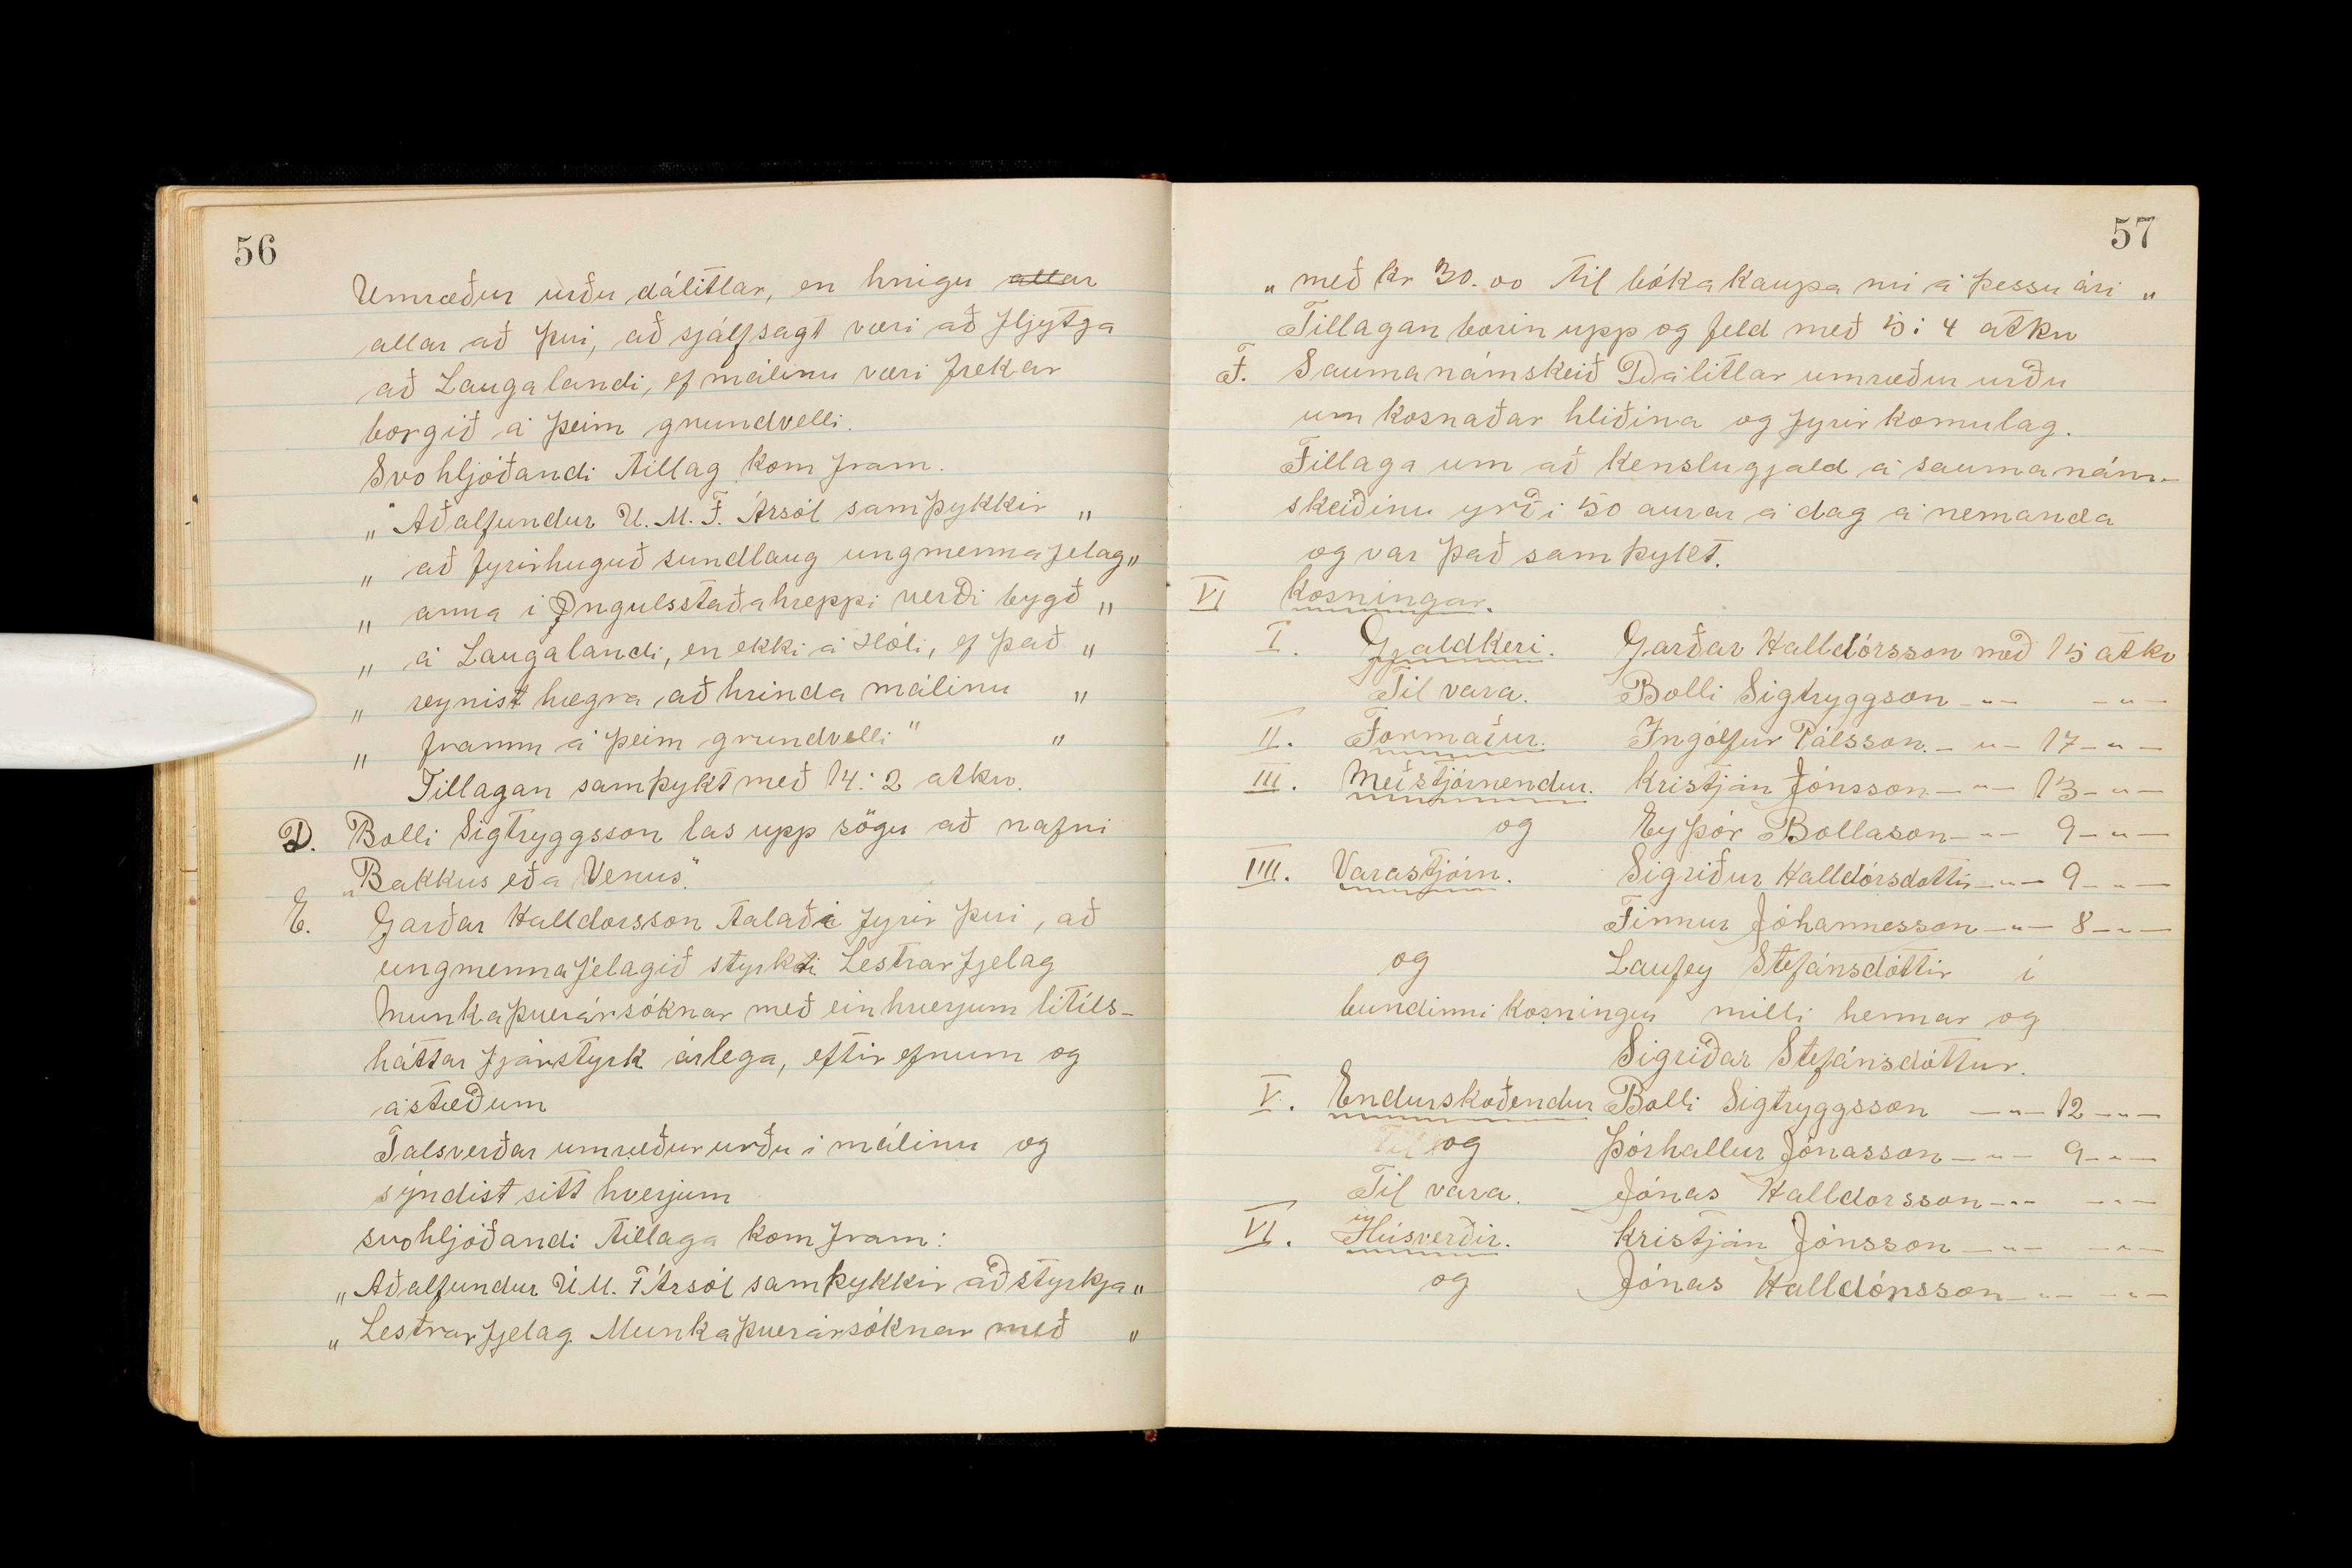 56
Umræður urðu dálitlar, en hnigu allar
allar að þvi, að sjálfsagt væri að flytja
að Laugalandi, ef málinu væri frekar
borgið á þeim grundvelli.
Svohljóðandi tillag kom fram.
„ "Aðalfundur U. M. F. Ársól samþykkir „
„ að fyrirhuguð sundlaug ungmennafjelag„
„ anna i Öngulsstaðahreppi verði bygð „
„ á Laugalandi, en ekki á Hóli, ef það „
„ reynist hægra, að hrinda málinu „
„ framm á þeim grundvelli" „
Tillagan samþykt með 14:2 atkv.
D. Bolli Sigtryggsson las upp sögu að nafni
„Bakkus eða Venus."
E. Garðar Halldorsson talaði fyrir þvi, að
ungmennafjelagið styrkti Lestrarfjelag
Munkaþverársóknar með einhverjum litils-
háttar fjárstyrk árlega, eftir efnum og
ástæðum
Talsverðar umræður urðu i málinu og
sýndist sitt hverjum
svohljóðandi tillaga kom fram:
„ Aðalfundur U.M. F Ársól samþykkir að styrkja „
„ Lestrarfjelag Munkaþverársóknar með „
57
„ með kr 30.00 til bókakaupa nú á þessu ári „
Tillagan borin upp og feld með 5:4 atkv
F. Saumanámskeið Dálitlar umræður urðu
um kosnaðar hliðina og fyrirkomulag.
Tillaga um að kenslugjald á saumanám-
skeiðinu yrði 50 aurar á dag á nemanda
og var það samþykt.
VI Kosningar.
I. Gjaldkeri. Garðar Halldórsson með 15 atkv
Til vara. Bolli Sigtryggson -„- -„-
II. Formaður. Ingólfur Pálsson. -„- 17 -„-
III. Meðstjórnendur. Kristján Jónsson -„- 13 -„-
og Eyþór Bollason -„- 9 -„-
IIII. Varastjórn. Sigriður Halldórsdottir -„- 9 -„-
Finnur Jóhannesson -„- 8 -„-
og Laufey Stefánsdóttir í
bundinni kosningu milli hennar og
Sigriðar Stefánsdóttur.
V. Endurskoðendur Bolli Sigtryggsson -„- 12 -„-
og Þórhallur Jónasson -„- 9 -„-
Til vara. Jónas Halldorsson -„- -„-
VI. Húsverðir. Kristján Jónsson -„- -„-
og Jónas Halldórsson -„- -„-